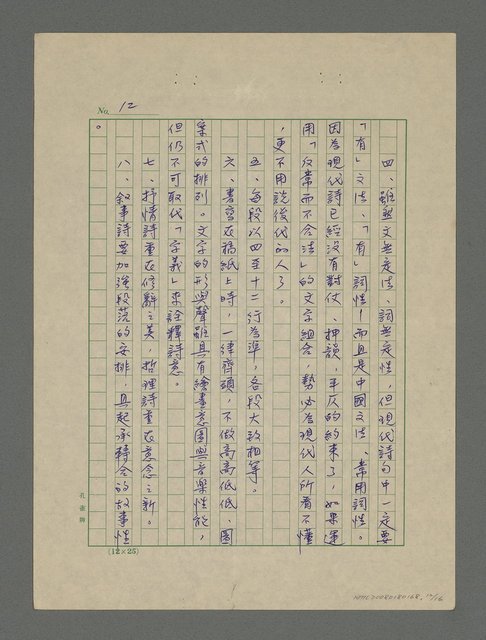 No. 12
四、雖然文無定法、詞無定性，但現代詩句中一定要
「有」文法、「有」詞性！而且是中國文法、常用詞性。
因為現代詩已經沒有對仗、押韻、平仄的約束了，如果運
用「反常而不合法」的文字組合，勢必為現代人所看不懂
，更不用說後代的人了。
五、每段以四至十二行為準，各段大致相等。
六、書寫在稿紙上時，一律齊頭，不做高高低低、圖
案式的排列。文字的形與聲雖具有繪畫意圖與音樂性能，
但仍不可取代「字義」來詮釋詩意。
七、抒情詩重在修辭之美，哲理詩重在意念之新。
八、敘事詩要加強段落的安排，具起承轉合的故事性
。
孔雀牌
(12×25)
NMTL20080180168, 12/16